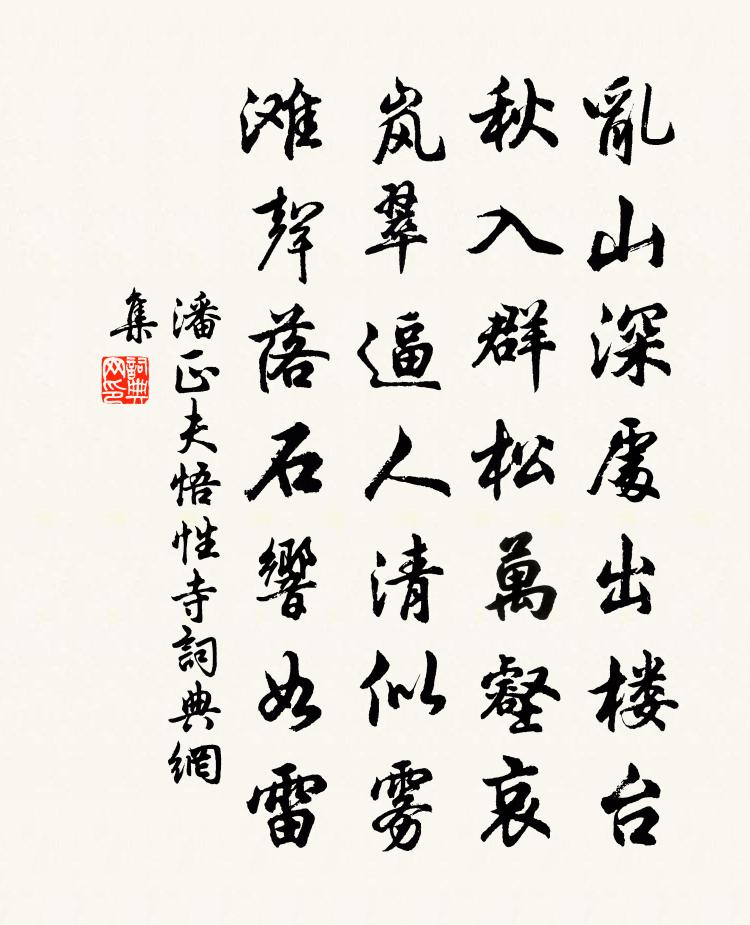 亂山深處出楼台
秋入群松萬壑哀
岚翠逼人清似雾
滩聲落石響如雷
潘正夫悟性寺詞典網
集
詞典
网印